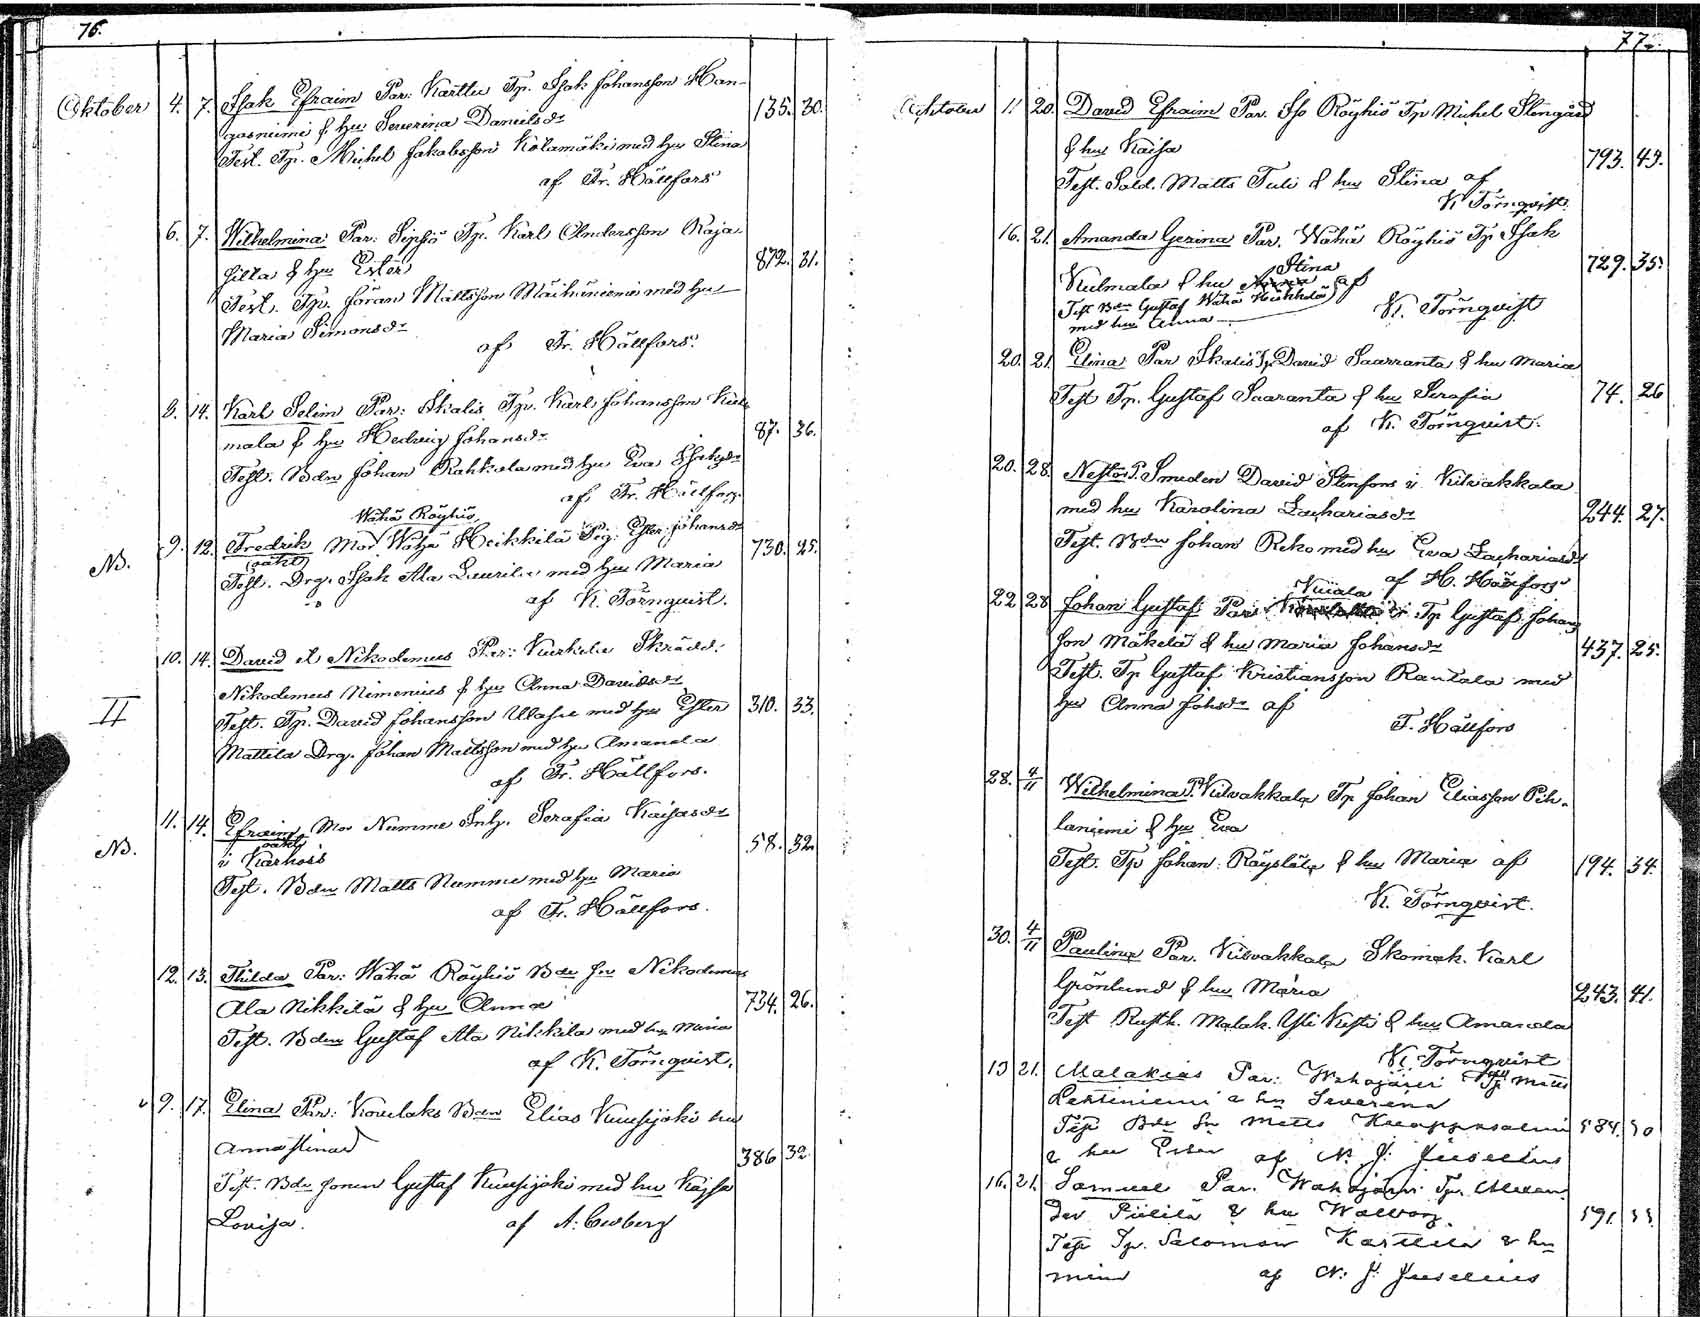 76.
Oktober 4. 7. Isak Efraim Par: Karttu Tp. Isak Johansson Han-
gasniemi & hu Severina Danielsdr 135. 30.
Test. Tp. Michel Jakobsson Kölamäki med hu Stina
af Fr. Hällfors
6. 7. Wilhelmina Par: Sipsiö Tp. Karl Andersson Raja
silta & hu Ester 872. 31.
Test. Tp. Göran Mattsson med hu
Maria Simonsdr
af Fr. Hällfors.
8. 14. Karl Selim Par: Skalis Tp. Karl Johansson Kul
mala & hu Hedvig Johansdr 87. 36.
Test. Bdn Johan Rahkola med hu Eva Isaksdr
af Fr. Hällfors.
Wähä Röyhiö
NB. 9. 12. Fredrik Mor Wähä Heikkilä Pig: Ester Johansdr 730. 25.
(oäkt)
Test. Drg. Isak Ala Laurila med hu Maria
af K. Törnqvist.
10. 14. David et Nikodemus Par: Kurkela Skrädd.
II Nikodemus Nimenius & hu Anna Davidsdr 310. 33.
Test. Tp. David Johansson med hu Ester
Mattila Drg. Johan Mattsson med hu Amanda
af Fr. Hällfors.
NB. 11. 14. Efraim Mor Numme Inh. Serafia Kaisasdr 58. 32.
oäkt
i Karhois
Test. Bdn Matts Numme med hu Maria
af Fr. Hällfors.
12. 13. Thilda Par: Wähä Röyhiö Bde sn Nikodemus
Ala Nikkilä & hu Anna 734. 26.
Test. Bdn Gustaf Ala Nikkila med hu Maria
af K. Törnqvist.
9. 17. Elina Par: Kovelaks Bdn Elias Kuusijoki hu
Anna Stina 386 32
Test. Bde sonen Gustaf Kuusijoki med hu Kajsa
Lovisa. af A:
77.
Oktober 11 20. David Efraim Par. Iso Röyhiö Tp Michel Stengård
& hu Kaisa 793. 43.
Test. Sold. Matts Tuli & hu Stina af
K Törnqvist.
16. 21. Amanda Gerina Par. Wähä Röyhiö Tp Isak
Stina
Kulmala & hu af 729. 35.
Test Bdn Gustaf Wähä Heikkilä
med hu Anna
K. Törnqvist
20. 21. Elina Par Skalis Tp David Saarranta & hu Maria
Test Tp. Gustaf Saaranta & hu Serafia 74. 26
af K. Törnqvist.
20. 28. Nestor P. Smeden David Stenfors i Kilvakkala
med hu Karolina Zachariasdr 244. 27.
Test. Bdn Johan Reko med hu Eva Zachariasdr
af H. Hällfors
Kuiala
22 28 Johan Gustaf Par: Tp Gustaf Johans
son Mäkelä & hu Maria Johansdr 437. 25.
Test. Tp Gustaf Kristiansson Rantala med
hu Anna Johsdr af
F. Hällfors
28. 4/11 Wilhelmina P. Kilvakkala Tp Johan Eliasson Pih-
laniemi & hu Eva
Test. Tp Johan Röyslälä & hu Maria af 194. 34.
K. Törnqvist.
30. 4/11 Paulina Par. Kilvakkala Skomak. Karl
Grönlund & hu Maria 243. 41.
Test Rusth. Malak. Yli Kusti & hu Amanda
K. Törnqvist
13 21. Malakias Par: Wahojärvi Tp Matts
Perttiniemi & hu Severina
Test Bde Sn Matts Kuoppasalmi 584. 30
& hu Ester af N. J. Juselius
16. 21. Samuel Par. Wahojärvi Tp. Alexan
der Piililä & hu Walborg. 591.
Test Tp. Salomon Karttila & hu
Mina af N: J: Juselius